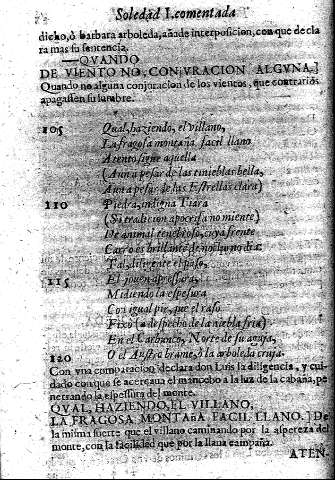 Soledad I. comentada
dicho, ò barbara arboleda, añade interposicion, con que declara
ra mas su sentencia.
—QVANDO
DE VIENTO NO, CONIVRACION ALGVNA.]
Quando no alguna conjuracion de los vientos, que contrarios
apagassen su lumbre.
105 Qual, haziendo, el villano,
La fragosa montaña, facil llano,
Atento sigue aquella
(Aun a pesar de las tinieblas bella,
Aun a pesar de las Estrellas clara)
110 Piedra, indigna Tiara
(Si tradicion apocrifa no miente)
De animal tenebroso, cuya frente
Carro es brillante de nocturno dia:
Tal, diligente el passo,
115 El joven apressura,
Midiendo la espesura
Con igual pie, que el raso
Fixo (a despecho de la niebla fria)
En el Carbunco, Norte de su aguja,
120 O el Austro brame, ò la arboleda cruja.
Con vna comparacion declara don Luis la diligencia, y cui-
dado con que se acercaua el mancebo a la luz de la cabaña, pe
netrando la espessura del monte.
QVAL, HAZIENDO, EL VILLANO,
LA FRAGOSA MONTAÑA, FACIL LLANO.] De
la misma suerte que el villano caminando por la aspereza del
monte, con la facilidad que por la llana campaña.
ATEN-